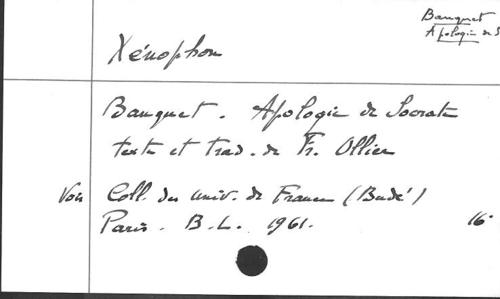 Banquet
Apologie de S
Xénophon
Banquet. Apologie de Socrate
texte et trad. de Fr. Ollier
Voir Coll. des Univ. de France (Budé)
Paris. B.L. 1961. 16°